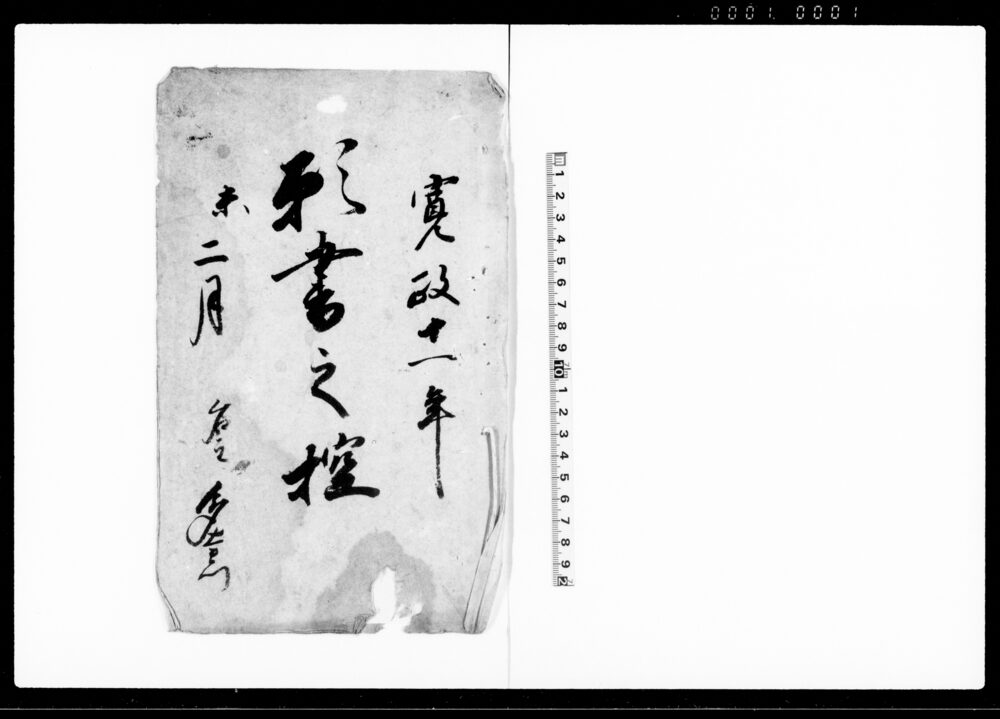 0001 0001
寛政十一年
願書之控
未二月
1 2 3 4 5 6 7 8 9 10 1 2 3 4 5 6 7 8 9 2